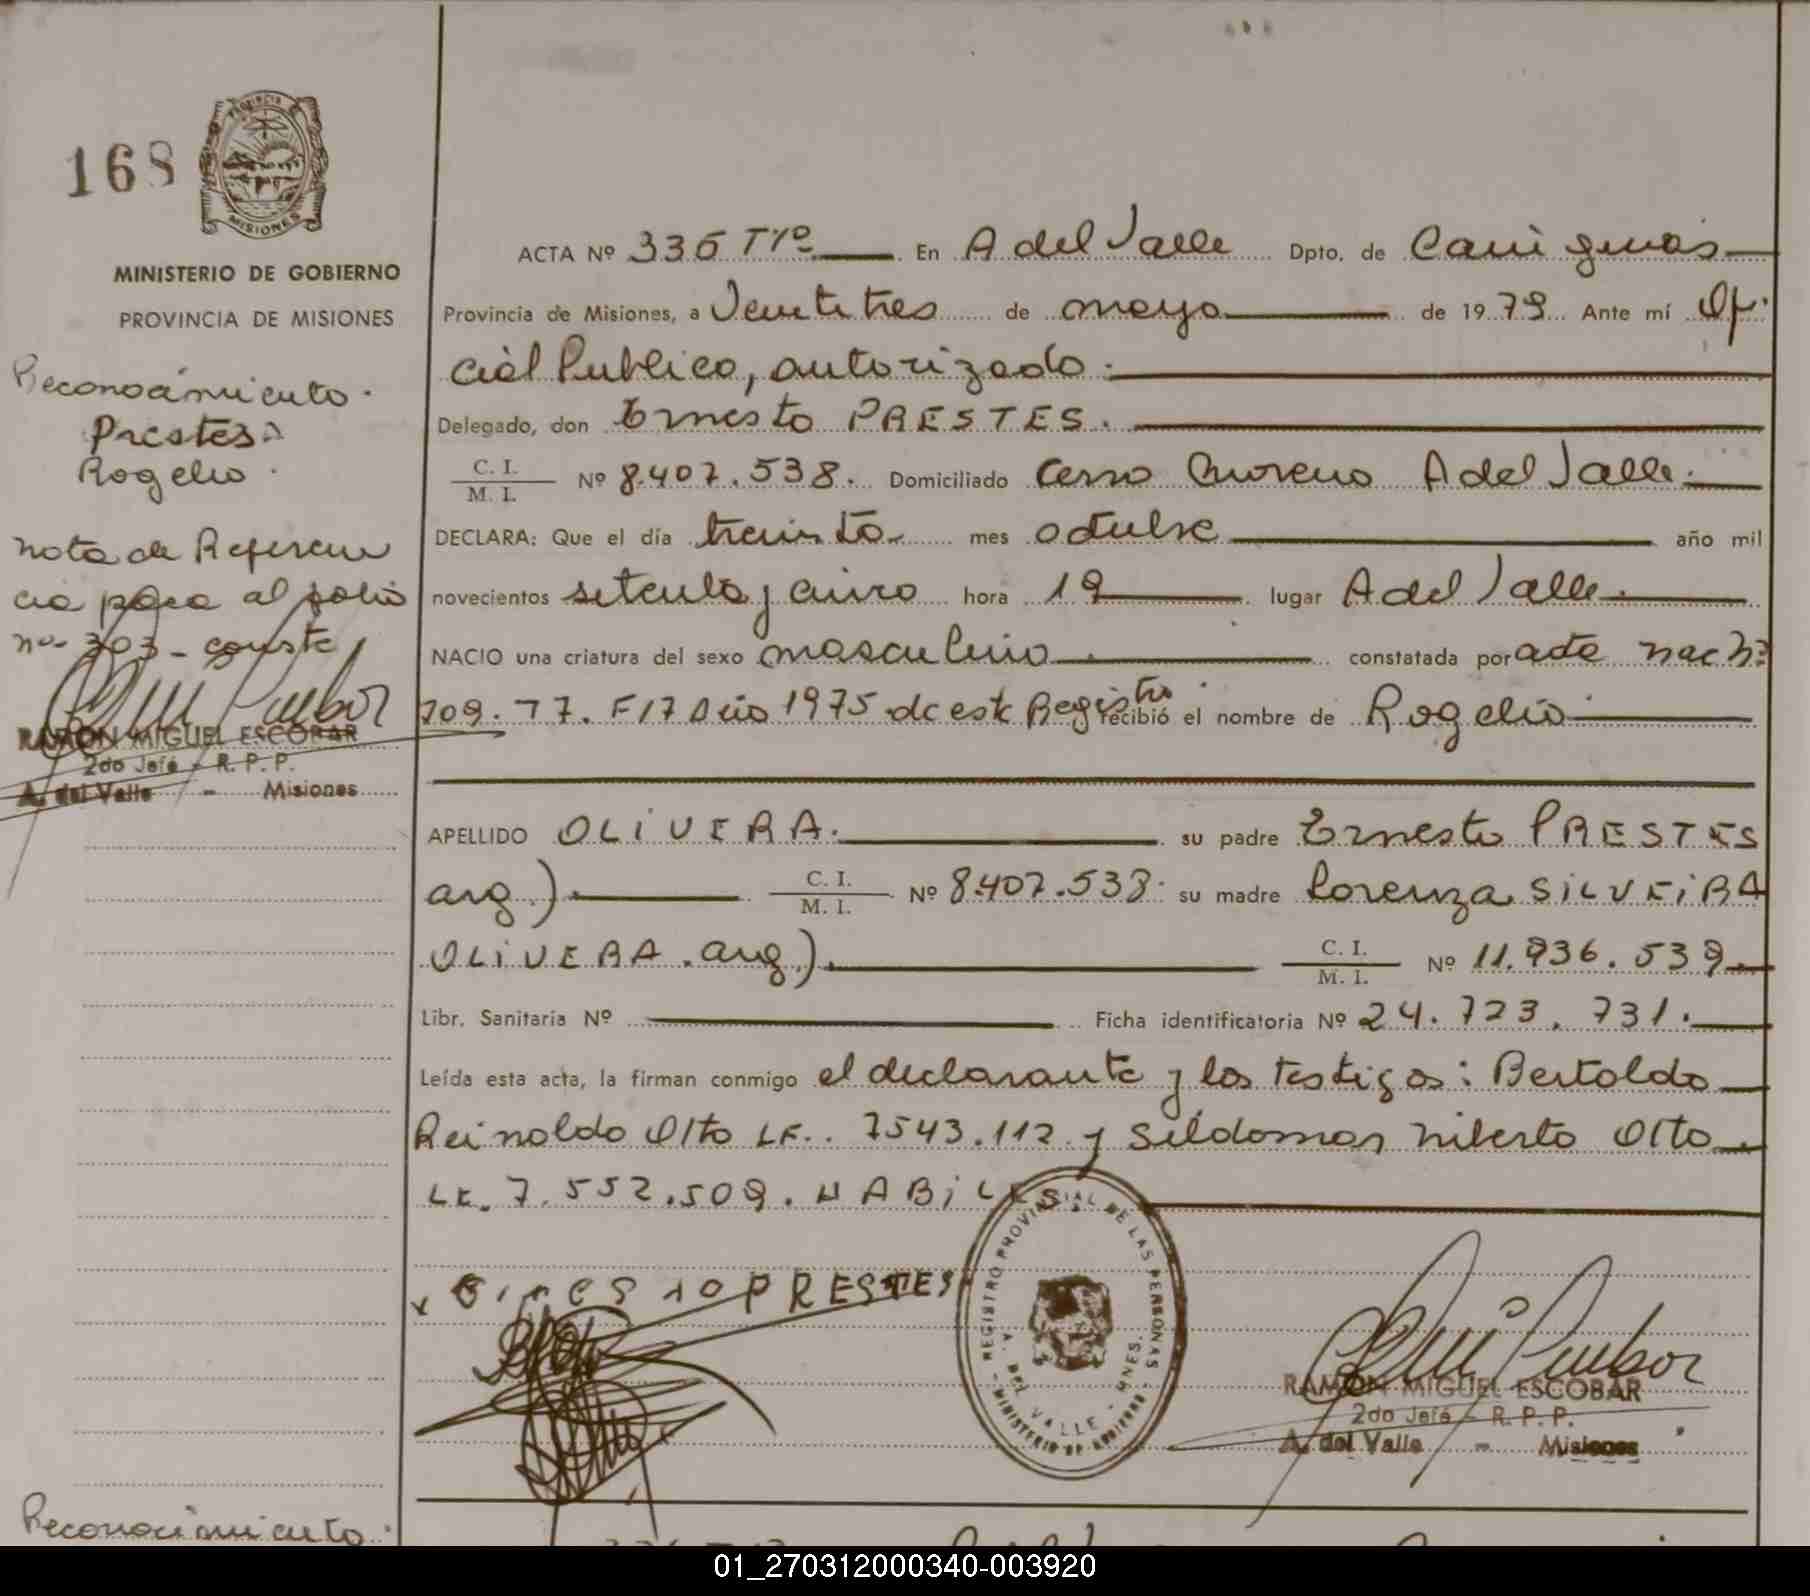 168
PROVINCIA DE
MISIONES
MINISTERIO DE GOBIERNO
PROVINCIA DE MISIONES
Reconocimiento.
Prestes
Rogelio.
nota de Referen
cia para al folio
nº 303 - conste
RAMON MIGUEL ESCOBAR
2do Jefe - R. P. P.
A. del Valle - Misiones
ACTA Nº 336 Tº1º En A del Valle Dpto. de Cainguas
Provincia de Misiones, a Veintitres de mayo de 1979 Ante mí Ofi
cial Publico, autorizado.
Delegado, don Ernesto PRESTES.
C. I. / M. I. Nº 8.407.538. Domiciliado Cerro Moreno A del Valle.
DECLARA: Que el día treinta mes octubre año mil
novecientos setenta y cinco hora 19 lugar A del Valle.
NACIO una criatura del sexo masculino constatada por acta nac Nº
709. T7. F17 Año 1975 de este Registro. recibió el nombre de Rogelio
APELLIDO OLIVERA. su padre Ernesto PRESTES
arg.) C. I. / M. I. Nº 8.407.538. su madre Lorenza SILVEIRA
OLIVERA. arg.) C. I. / M. I. Nº 11.936.539
Libr. Sanitaria Nº Ficha identificatoria Nº 24.723.731.
Leída esta acta, la firman conmigo el declarante y los testigos: Bertoldo
Reinoldo Otto LE. 7543.112 y Seldomar Milerto Otto
LE. 7.552.509. HABILES
x Ernesto PRESTES
REGISTRO PROVINCIAL DE LAS PERSONAS
A. DEL VALLE - MNES.
- MINISTERIO DE GOBIERNO -
RAMON MIGUEL ESCOBAR
2do Jefe - R. P. P.
A. del Valle - Misiones
Reconocimiento.
01_270312000340-003920